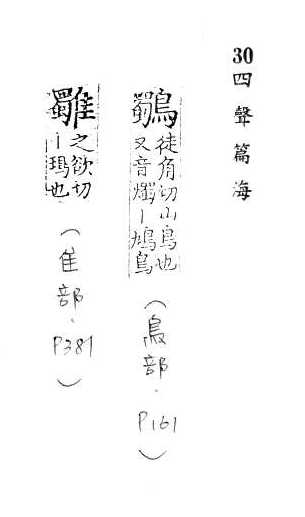 30四聲篇海
鸀
徒角切山鳥也
又音燭丨鳿鳥
(鳥部.P161)
之欲切
丨鳿也
(隹部.P381)